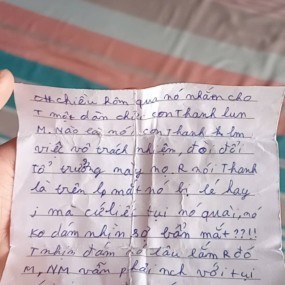 chiều hôm qua nó nhắm cho
T một dòn chí con Thanh lun
M. Nào là nó, con Thanh k lm
việc vô trách nhiệm, đòi đổi
tổ trưởng này nọ. R nói Thanh
là trên lp mắt nó bị lé hay
j mà cứ liếc tụi nó quài, nó
ko dám nhìn sợ bẩn mắt??!!
T nhịn đấm nó lâu lắm R đó
M, NM vẫn phải nch với tụi